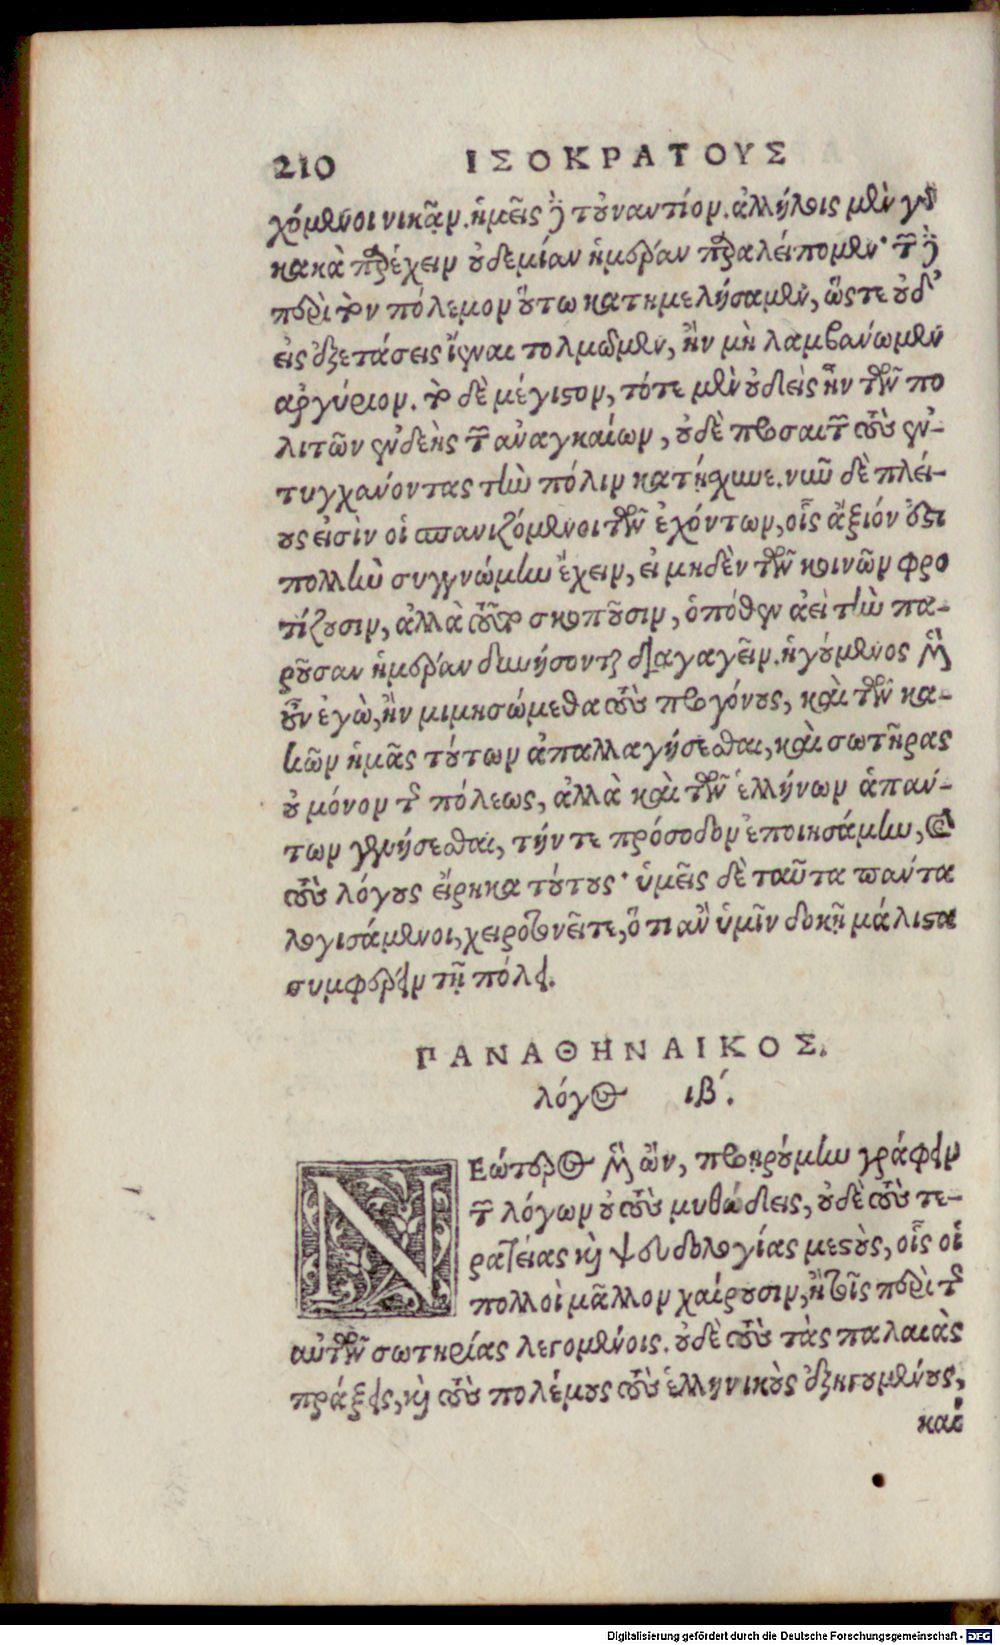 210 ΙΣΟΚΡΑΤΟΥΣ
χόμενοι νικᾷν. ἡμεῖς δὲ τοὐναντίον. ἀλλήλοις μὲν γὰρ
κακὰ παρέχειν οὐδεμίαν ἡμέραν παραλείπομεν· τῶν δὲ
περὶ τὸν πόλεμον οὕτω κατημελήσαμεν, ὥστε οὐδ’
εἰς ἐξετάσεις ἰέναι τολμῶμεν, ἢν μὴ λαμβάνωμεν
ἀργύριον. τὸ δὲ μέγιστον, τότε μὲν οὐδεὶς ἦν τῶν πο
λιτῶν ἐνδεὴς τῶν ἀναγκαίων, οὐδὲ προσαιτῶν τοὺς ἐν-
τυγχάνοντας τὴν πόλιν κατῄσχυνε. νῦν δὲ πλεί-
ους εἰσὶν οἱ σπανιζόμενοι τῶν ἐχόντων, οἷς ἄξιόν ἐστι
πολλὴν συγγνώμην ἔχειν, εἰ μηδὲν τῶν κοινῶν φρο
τίζουσιν, ἀλλὰ τοῦτο σκοποῦσιν, ὁπόθεν ἀεὶ τὴν πα-
ροῦσαν ἡμέραν δυνήσονται διαγαγεῖν. ἡγούμενος μὲν
οὖν ἐγὼ, ἢν μιμησώμεθα τοὺς προγόνους, καὶ τῶν κα-
κῶν ἡμᾶς τούτων ἀπαλλαγήσεσθαι, καὶ σωτῆρας
οὐ μόνον τῆς πόλεως, ἀλλὰ καὶ τῶν ἑλλήνων ἁπάν-
των γενήσεσθαι, τήν τε πρόσοδον ἐποιησάμην, καὶ
τοὺς λόγους εἴρηκα τούτους· ὑμεῖς δὲ ταῦτα πάντα
λογισάμενοι, χειροτονεῖτε, ὅ τι ἂν ὑμῖν δοκῇ μάλιστα
συμφέρειν τῇ πόλει.
ΠΑΝΑΘΗΝΑΙΚΟΣ.
λόγος ιβ´.
ΝΕώτερος μὲν ὢν, προῃρούμην γράφειν
τῶν λόγων οὐ τοὺς μυθώδεις, οὐδὲ τοὺς τε-
ρατείας καὶ ψευδολογίας μεστοὺς, οἷς οἱ
πολλοὶ μᾶλλον χαίρουσιν, ἢ τοῖς περὶ τῆς
αὑτῶν σωτηρίας λεγομένοις. οὐδὲ τοὺς τὰς παλαιὰς
πράξεις, καὶ τοὺς πολέμους τοὺς ἑλληνικοὺς ἐξηγουμένους,
καὶ
Digitalisierung gefördert durch die Deutsche Forschungsgemeinschaft - DFG